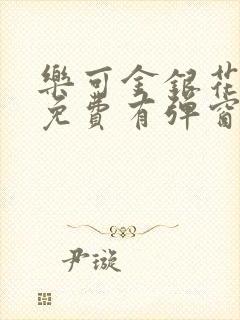 樂可金銀花
免費有彈窗
尹璇